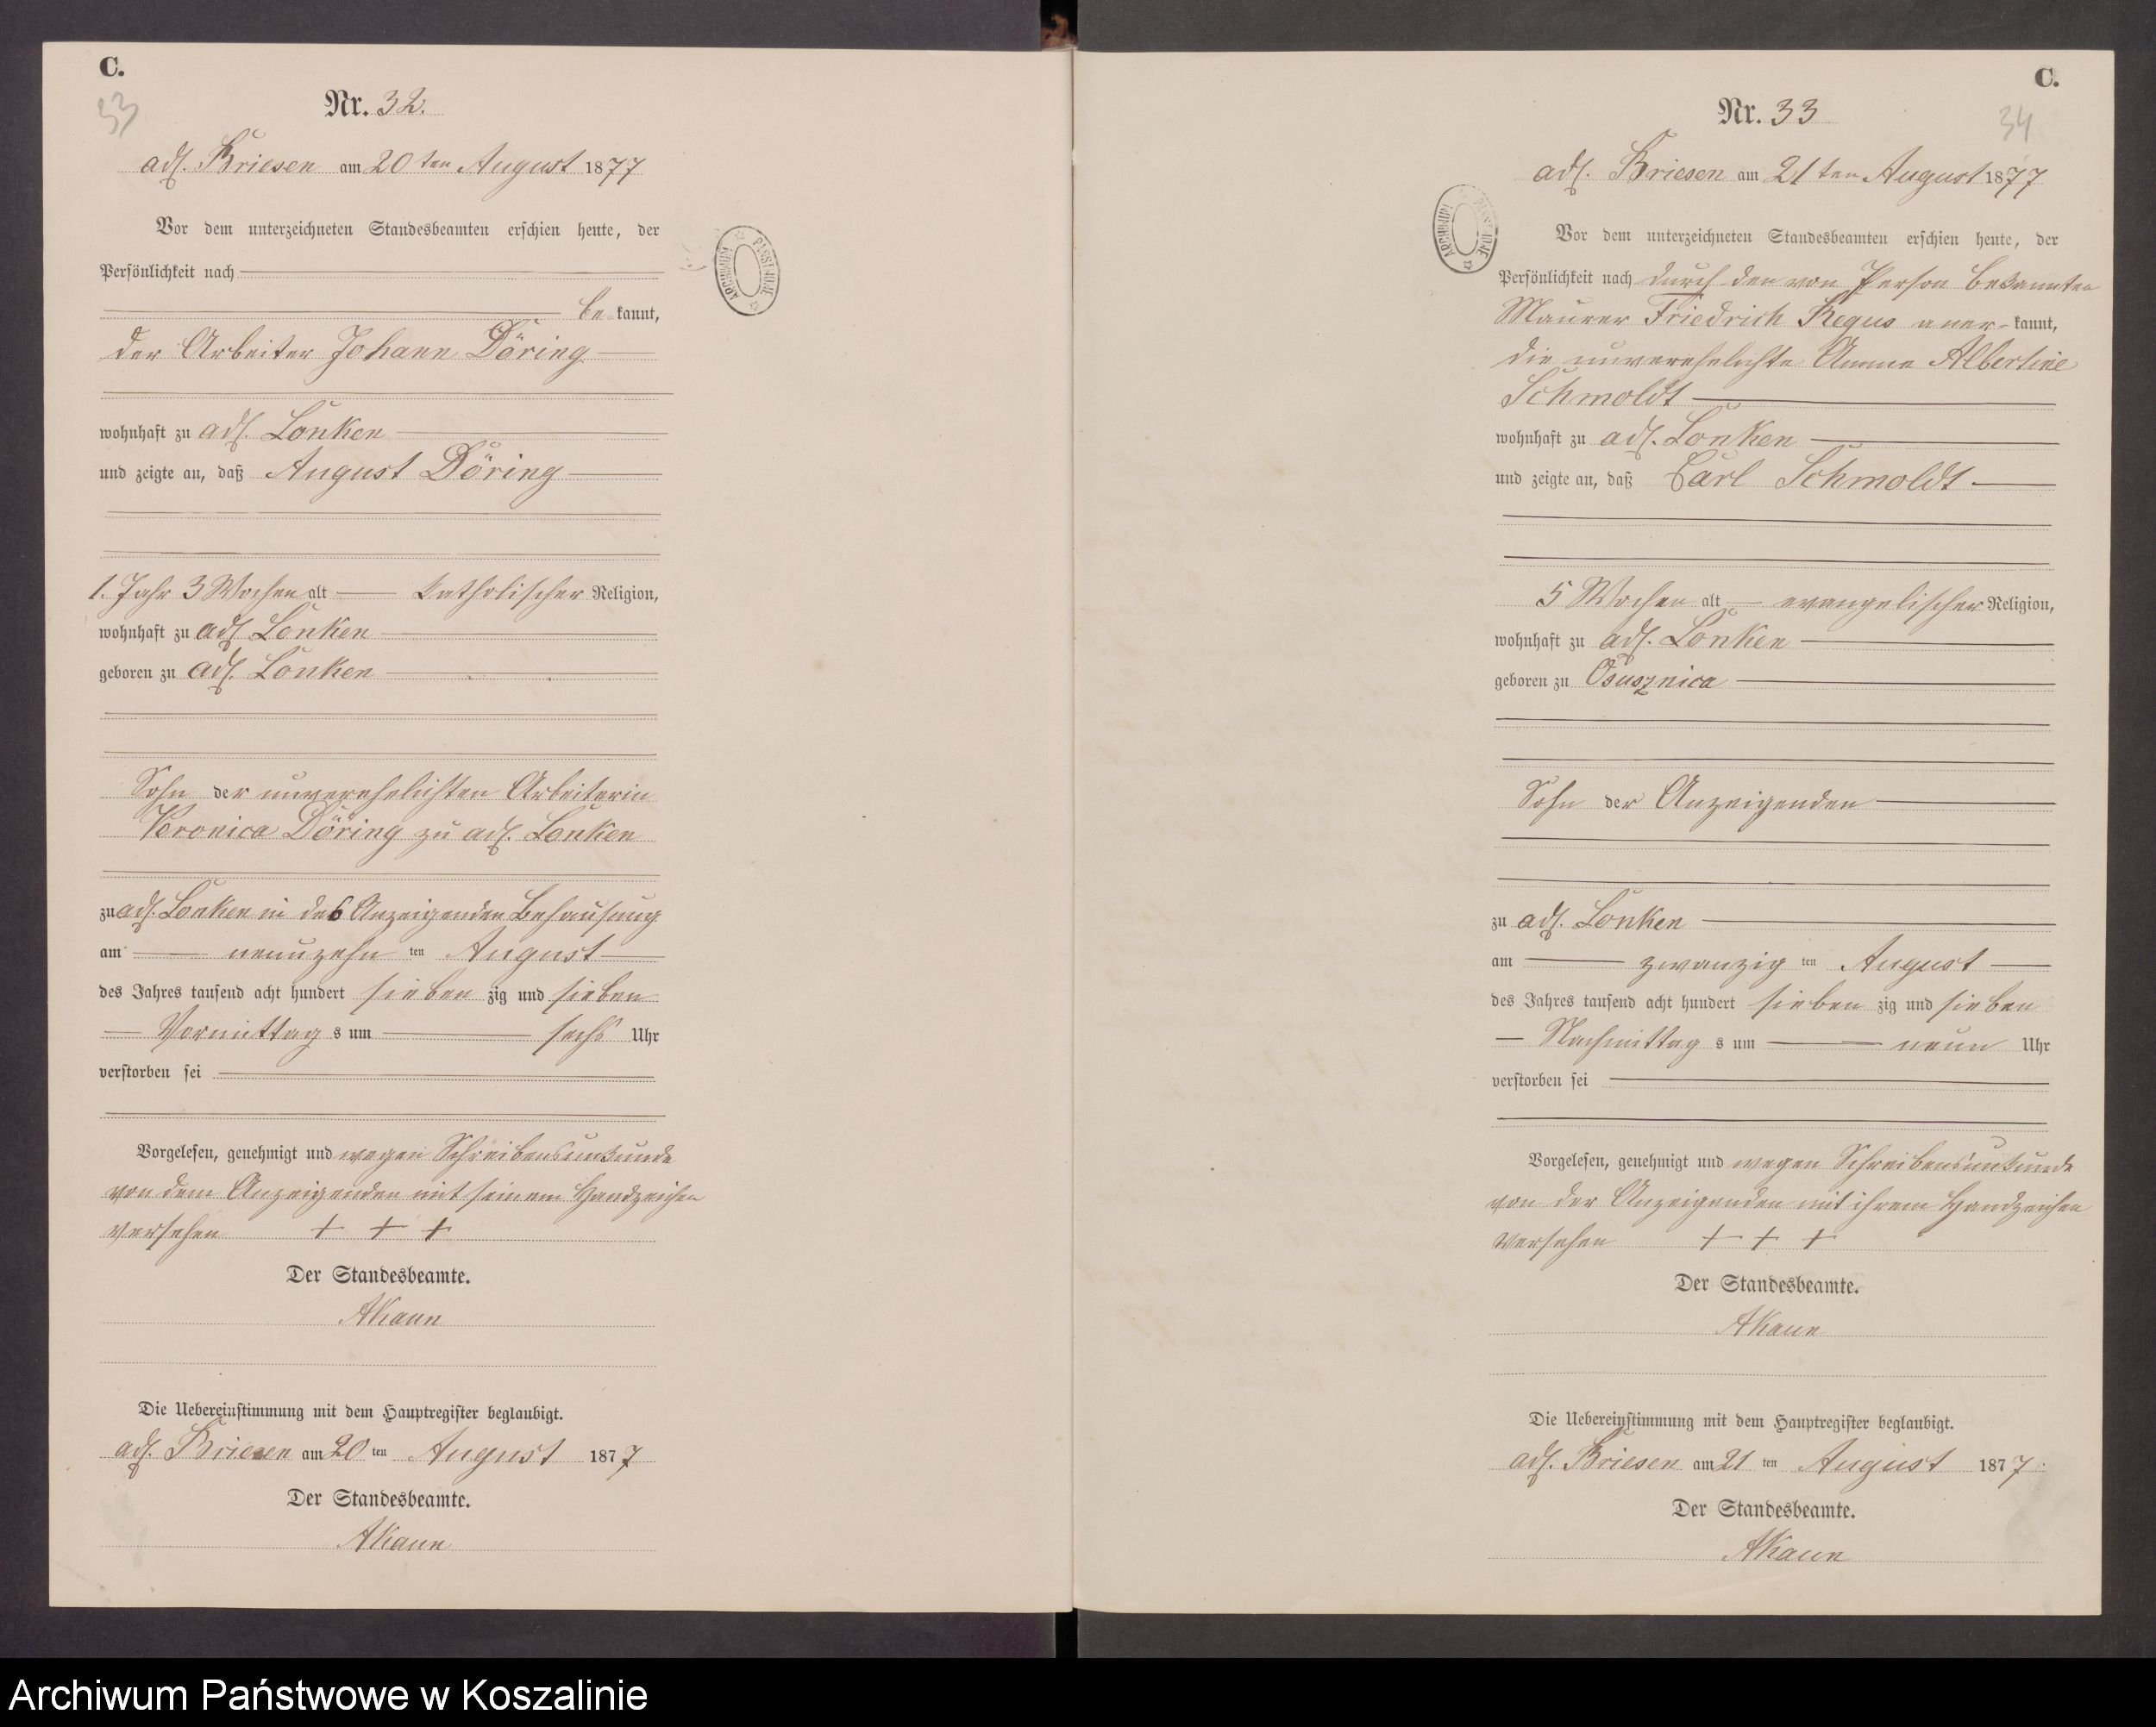 C.
53
Nr. 32.
adl. Briesen am 20ten August 1877
Vor dem unterzeichneten Standesbeamten erschien heute, der
Persönlichkeit nach
be-kannt,
der Arbeiter Johann Döring
wohnhaft zu adl. Lonken
und zeigte an, daß August Döring
1. Jahr 3 Wochen alt katholischer Religion,
wohnhaft zu adl. Lonken
geboren zu adl. Lonken
Sohn der unverehelichten Arbeiterin
Veronica Döring zu adl. Lonken
zu adl. Lonken in des Anzeigenden Behausung
am neunzehn ten August
des Jahres tausend acht hundert sieben zig und sieben
Vormittag s um sechs Uhr
verstorben sei
Vorgelesen, genehmigt und wegen Schreibensunkunde
von dem Anzeigenden mit seinem Handzeichen
versehen + + +
Der Standesbeamte.
AKaun
Die Uebereinstimmung mit dem Hauptregister beglaubigt.
adl. Briesen am 20 ten August 1877
Der Standesbeamte.
AKaun
ARCHIWUM PAŃSTWOWE
C.
34
Nr. 33
adl. Briesen am 21ten August 1877
Vor dem unterzeichneten Standesbeamten erschien heute, der
Persönlichkeit nach durch den von Person bekannten
Maurer Friedrich Regus aner-kannt,
die unverehelichte Amme Albertine
Schmoldt
wohnhaft zu adl. Lonken
und zeigte an, daß Carl Schmoldt
5 Wochen alt evangelischer Religion,
wohnhaft zu adl. Lonken
geboren zu Osusznica
Sohn der Anzeigenden
zu adl. Lonken
am zwanzig ten August
des Jahres tausend acht hundert sieben zig und sieben
Nachmittag s um neun Uhr
verstorben sei
Vorgelesen, genehmigt und wegen Schreibensunkunde
von der Anzeigenden mit ihrem Handzeichen
versehen + + +
Der Standesbeamte.
AKaun
Die Uebereinstimmung mit dem Hauptregister beglaubigt.
adl. Briesen am 21 ten August 1877.
Der Standesbeamte.
AKaun
ARCHIWUM PAŃSTWOWE
Archiwum Państwowe w Koszalinie